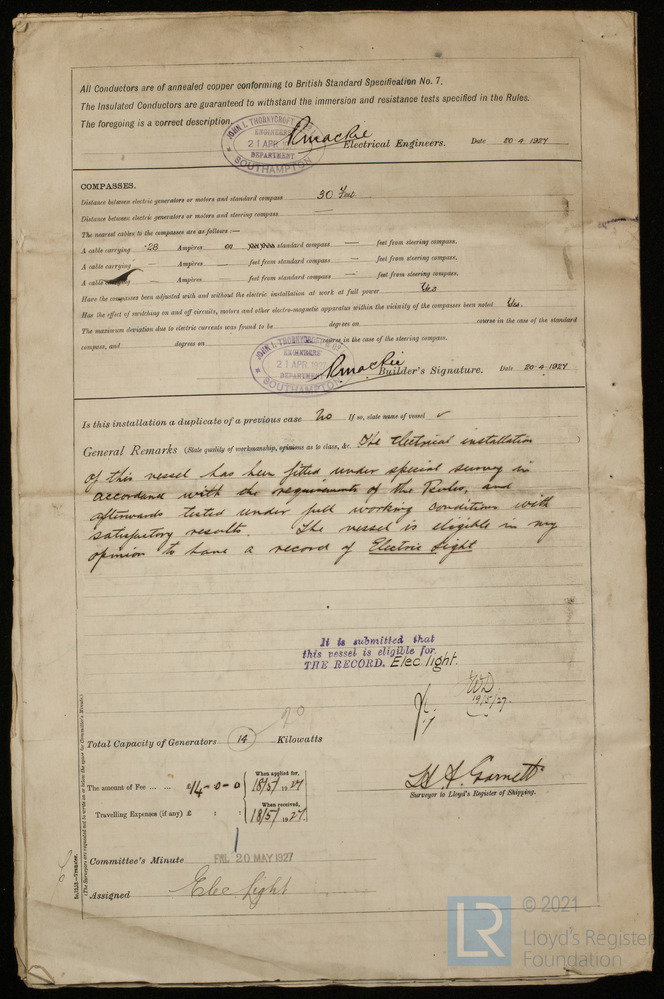 All Conductors are of annealed copper conforming to British Standard Specification No. 7.
The Insulated Conductors are guaranteed to withstand the immersion and resistance tests specified in the Rules.
The foregoing is a correct description,
JOHN I. THORNYCROFT & Co
ENGINEERS
21 APR. 1927
DEPARTMENT
SOUTHAMPTON
Electrical Engineers. Date 20·4·1927
COMPASSES.
Distance between electric generators or motors and standard compass 30 Feet
Distance between electric generators or motors and steering compass —
The nearest cables to the compasses are as follows:—
A cable carrying ·28 Ampères on standard compass — feet from steering compass.
A cable carrying Ampères feet from standard compass — feet from steering compass.
A cable carrying — Ampères feet from standard compass — feet from steering compass.
Have the compasses been adjusted with and without the electric installation at work at full power Yes
Has the effect of switching on and off circuits, motors and other electro-magnetic apparatus within the vicinity of the compasses been noted Yes.
The maximum deviation due to electric currents was found to be degrees on course in the case of the standard
compass, and degrees on course in the case of the steering compass.
JOHN I. THORNYCROFT & Co
ENGINEERS
21 APR. 1927
DEPARTMENT
SOUTHAMPTON
Builder's Signature. Date 20·4·1927
Is this installation a duplicate of a previous case No If so, state name of vessel ✓
General Remarks (State quality of workmanship, opinions as to class, &c. The Electrical installation
of this vessel has been fitted under special survey in
accordance with the requirements of the Rules, and
afterwards tested under full working conditions with
satisfactory results. The vessel is eligible in my
opinion to have a record of Electric Light
It is submitted that
this vessel is eligible for
THE RECORD. Elec light.
19/5/27.
20
Total Capacity of Generators 14 Kilowatts
The amount of Fee ... ... £14-0-0 When applied for, 18/5/1927
Travelling Expenses (if any) £ : : When received, 18/5/1927.
Surveyor to Lloyd's Register of Shipping.
Committee's Minute FRI. 20 MAY 1927
Assigned Elec Light
(The Surveyors are requested not to write on or below the space for Committee's Minute.)
LR © 2021
Lloyd's Register
Foundation